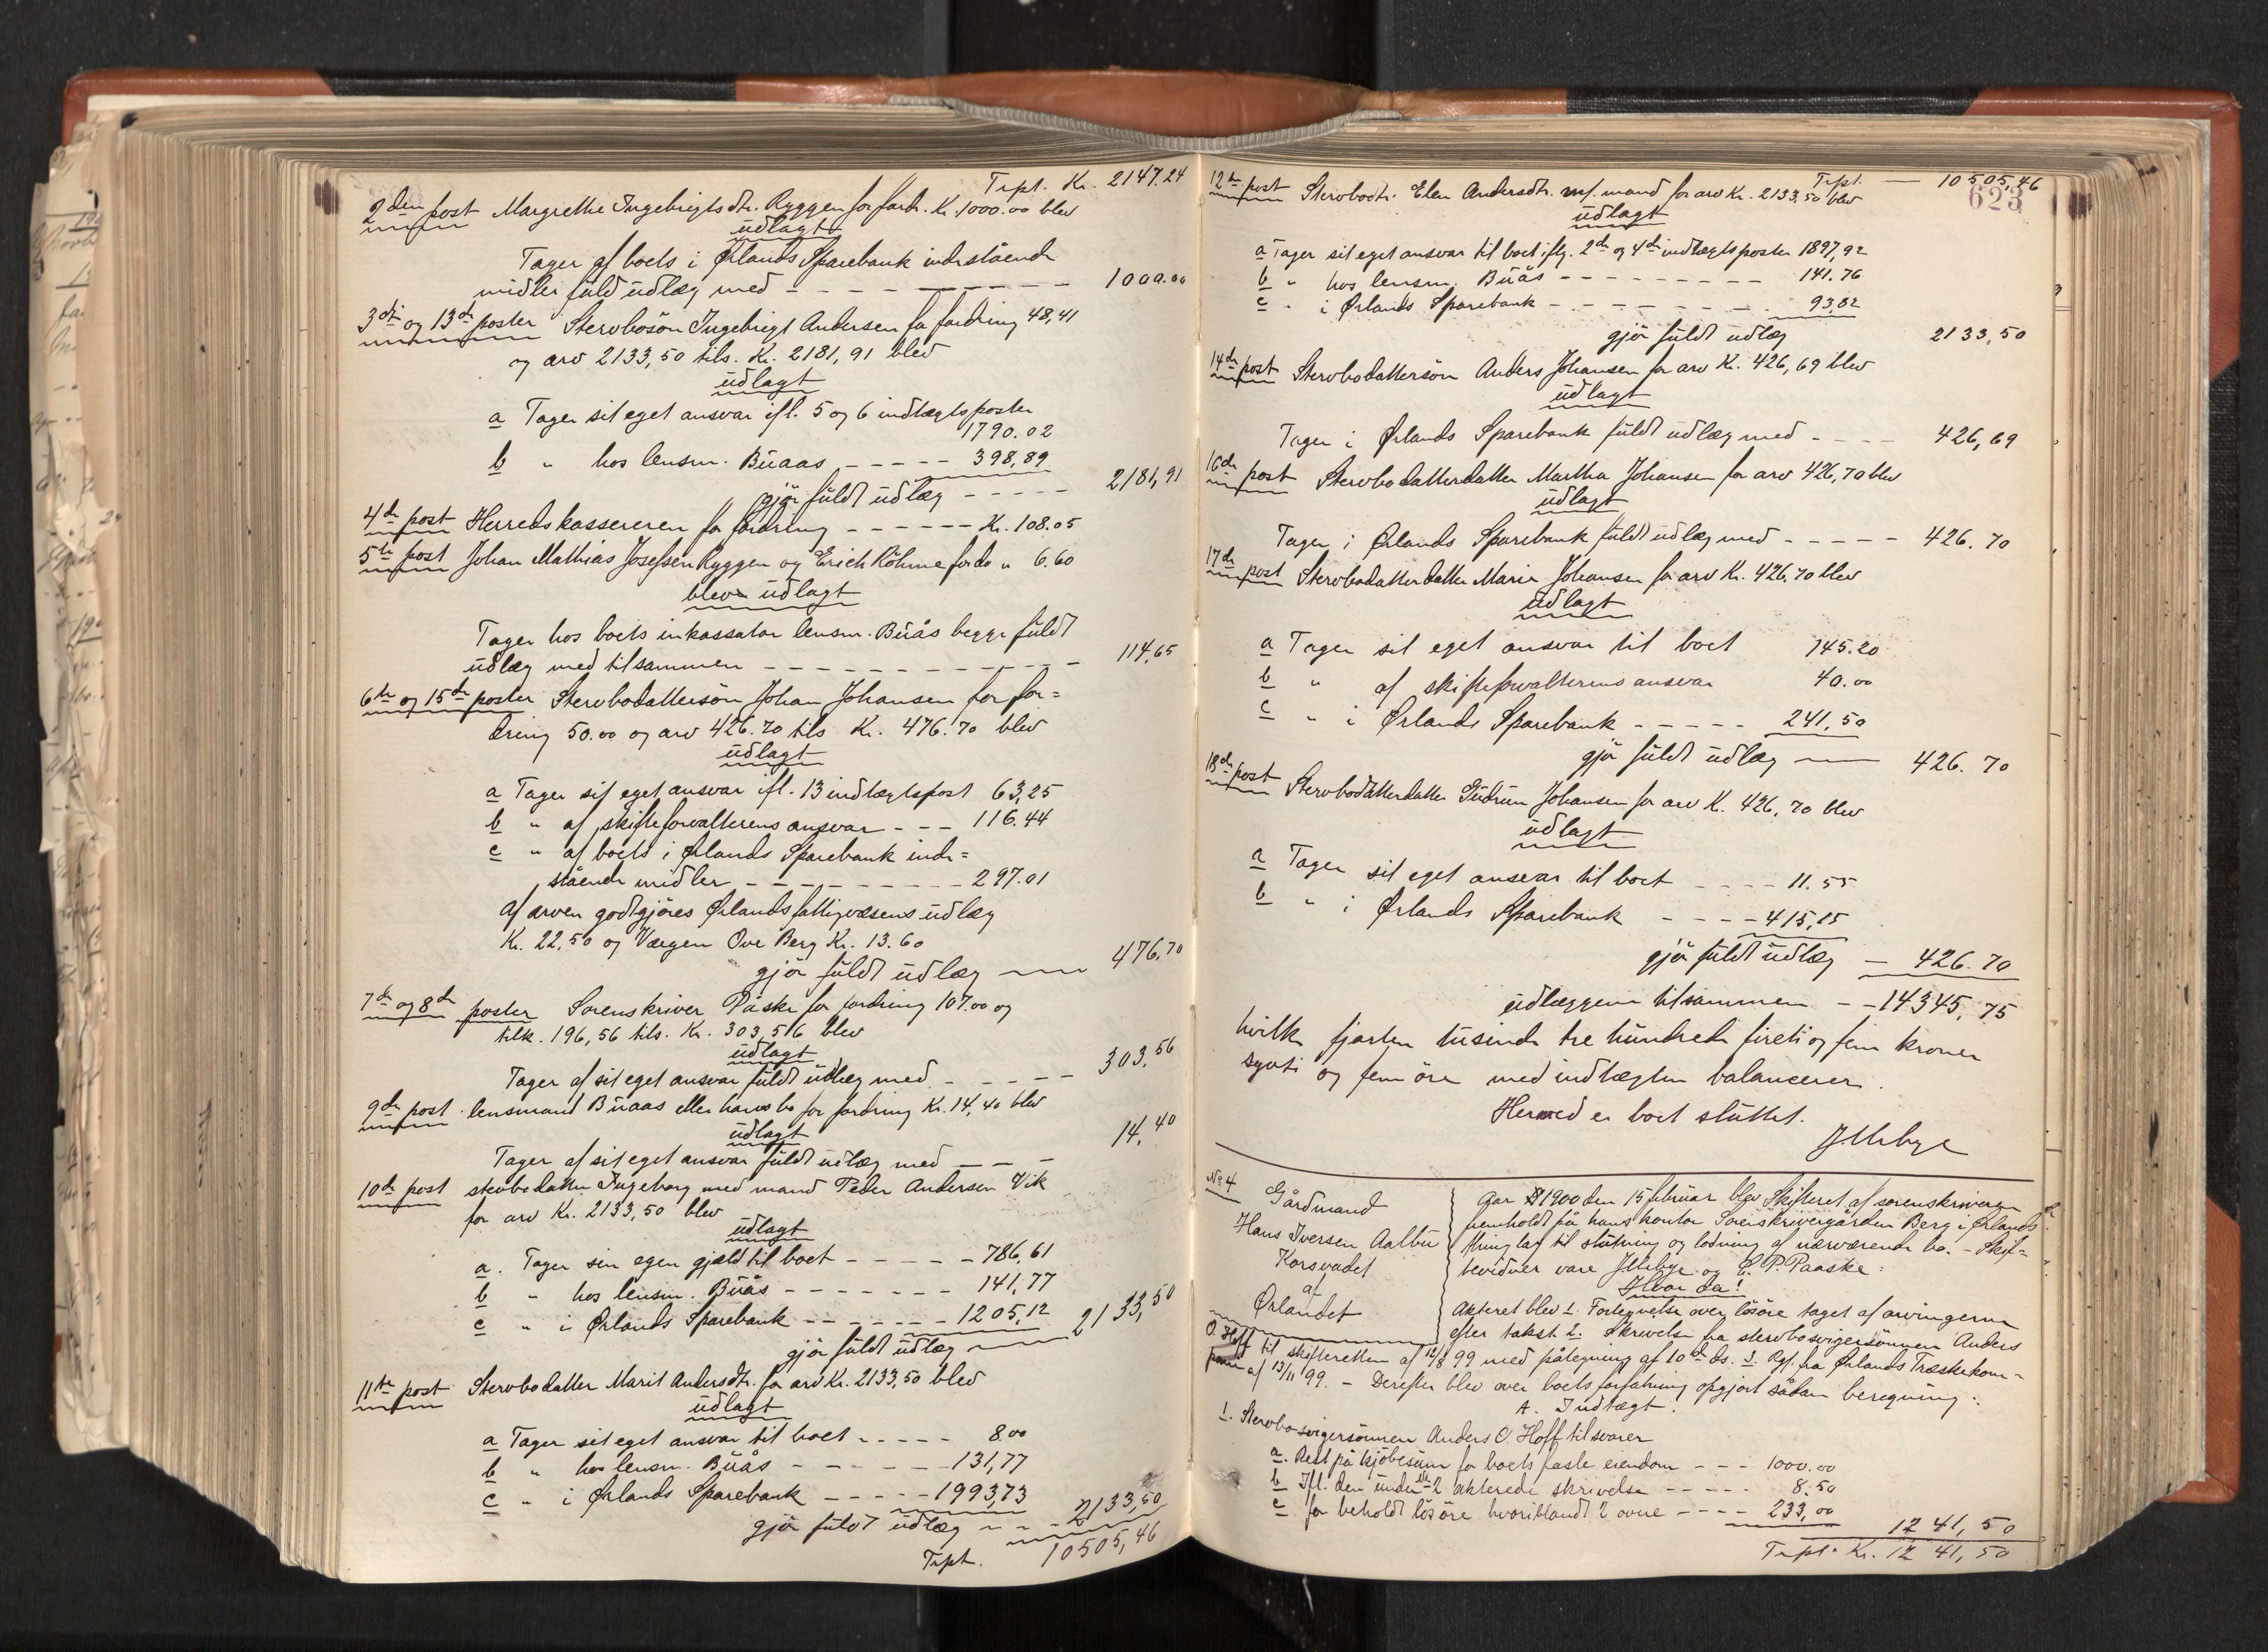 Trpt. Kr. 2147.24
2den post Margrethe Ingebrigtsdtr. Ryggen for fordr. Kr. 1000.00 blev
udlagt
Tager af boets i Ørlands Sparebank indestående
midler fuld udlæg med - - - - - - - - 1000.00
3die og 13de poster Stervbosön Ingebrigt Andersen for fordring 48,41
og arv 2133,50 tils. Kr. 2181,91 blev
udlagt
a Tager sit eget ansvar ifl. 5 og 6 indtægtsposter
1790.02
b " hos lensm. Buaas - - - - - 398,89
gjör fuldt udlæg - - - - - 2181,91
4de post Herredskassereren for fordring - - - - - - Kr. 108.05
5te post Johan Mathias Josefsen Ryggen og Erich Röhme for do " 6.60
blev udlagt
Tager hos boets inkassator lensm. Buås begge fuldt
udlæg med tilsammen - - - - - - - - - - 114,65
6te og 15de poster Stervbodattersön Johan Johansen for for=
dring 50.00 og arv 426.70 tils Kr. 476.70 blev
udlagt
a Tager sit eget ansvar ifl. 13 indtægtspost 63,25
b " af skifteforvalterens ansvar - - - 116.44
c " af boets i Ørlands Sparebank inde=
stående midler - - - - - - - - - 297.01
Af arven godtgjöres Ørlands fattigvæsens udlæg
Kr. 22,50 og Værgen Ove Berg Kr. 13.60
gjör fuldt udlæg — 476,70
7de og 8de poster Sorenskriver Påske for fordring 107.00 og
tilk. 196,56 tils. Kr. 303,56 blev
udlagt
Tager af sit eget ansvar fuldt udlæg med - - - - - 303,56
9de post lensmand Buaas eller hans bo for fordring Kr. 14,40 blev
udlagt
Tager af sit eget ansvar fuldt udlæg med - - - 14,40
10de post stervbodatter Ingeborg med mand Peder Andersen Vik
for arv Kr. 2133,50 blev
udlagt
a. Tager sin egen gjæld til boet - - - - - 786,61
b " hos lensm. Buås - - - - - - - 141,77
c " i Ørlands Sparebank - - - - - - 1205,12
gjör fuldt udlæg — 2133,50
11te post Stervbodatter Marit Andersdtr. for arv Kr. 2133,50 blev
udlagt
a Tager sit eget ansvar til boet - - - - - 8.00
b " hos lensm. Buås - - - - - - 131,77
c " i Ørlands Sparebank - - - - - 1993,73
gjör fuldt udlæg - - - 2133,50
Trpt. 10505,46
Trpt. — 10505,46
623
12te post Stervbodtr. Elen Andersdtr. m/. mand for arv Kr. 2133,50 blev
udlagt
a Tager sit eget ansvar til boet iflg. 2de og 4de indtægtsposter 1897,92
b " hos lensm. Buås - - - - - - - - 141.76
c " i Ørlands Sparebank - - - - - - - 93,82
gjör fuldt udlæg 2133,50
14de post Stervbodattersön Anders Johansen for arv Kr. 426,69 blev
udlagt
Tager i Ørlands Sparebank fuldt udlæg med - - - - 426,69
16de post Stervbodatterdatter Martha Johansen for arv 426,70 blev
udlagt
Tager i Ørlands Sparebank fuldt udlæg med - - - - - 426.70
17de post Stervbodatterdatter Marie Johansen for arv Kr. 426.70 blev
udlagt
a Tager sit eget ansvar til boet 145.20
b " af skifteforvalterens ansvar 40.00
c " i Ørlands Sparebank - - - - - 241.50
gjör fuldt udlæg — 426.70
18de post Stervbodatterdatter Gudrun Johansen for arv Kr. 426.70 blev
udlagt
a Tager sit eget ansvar til boet - - - - 11.55
b " i Ørlands Sparebank - - - - 415,15
gjör fuldt udlæg — 426.70
udlæggene tilsammen - - 14345,75
hvilke fjorten tusinde tre hundrede fireti og fem kroner
sytti og fem öre med indtægten balancerer.
Hermed er boet sluttet.
JUrbye
No 4
Gårdmand
Hans Iversen Aalbu
Korsvadet
af
Ørlandet
Aar 1900 den 15 februar blev Skifteret af sorenskriveren
fremholdt på hans kontor Sorenskrivergården Berg i Ørlands
thinglag til slutning og lodning af nærværende bo. - Skif=
tevidner vare JUrbye og C. P. Paaske.
Hvor da!
Akteret blev 1. Fortegnelse over lösöre taget af arvingerne
efter takst 2. Skrivelse fra stervbosvigersönnen Anders
O. Hoff til skifteretten af 12/8 99 med påtegning af 10de ds. 3. Rgf. fra Ørlands Træskekom=
pani af 13/11 99. - Derefter blev over boets forfatning opgjort sådan beregning:
A. Indtægt.
1. Stervbosvigersönnen Anders O. Hoff tilsvarer
a. Rest på kjöbesum for boets faste eiendom - - - 1000.00
b Ifl. den under No 2 akterede skrivelse - - - - - 8.50
c for beholdt lösöre hvoriblandt 2 ovne - - - - 233,00 1241,50
Trpt. Kr. 1241,50